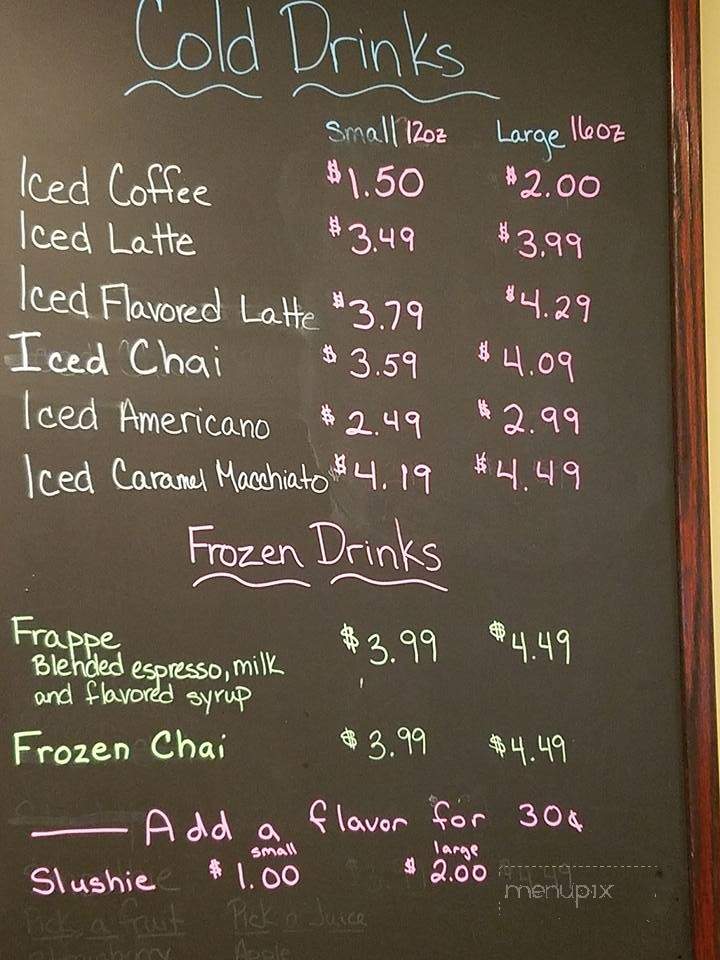 Cold Drinks
Small 12oz Large 16oz
Iced Coffee $1.50 $2.00
Iced Latte $3.49 $3.99
Iced Flavored Latte $3.79 $4.29
Iced Chai $3.59 $4.09
Iced Americano $2.49 $2.99
Iced Caramel Macchiato $4.19 $4.49
Frozen Drinks
Frappe $3.99 $4.49
Blended espresso, milk
and flavored syrup
Frozen Chai $3.99 $4.49
Add a flavor for 30¢
small large
Slushie $1.00 $2.00
menupix
Pick a fruit Pick a Juice
Apple